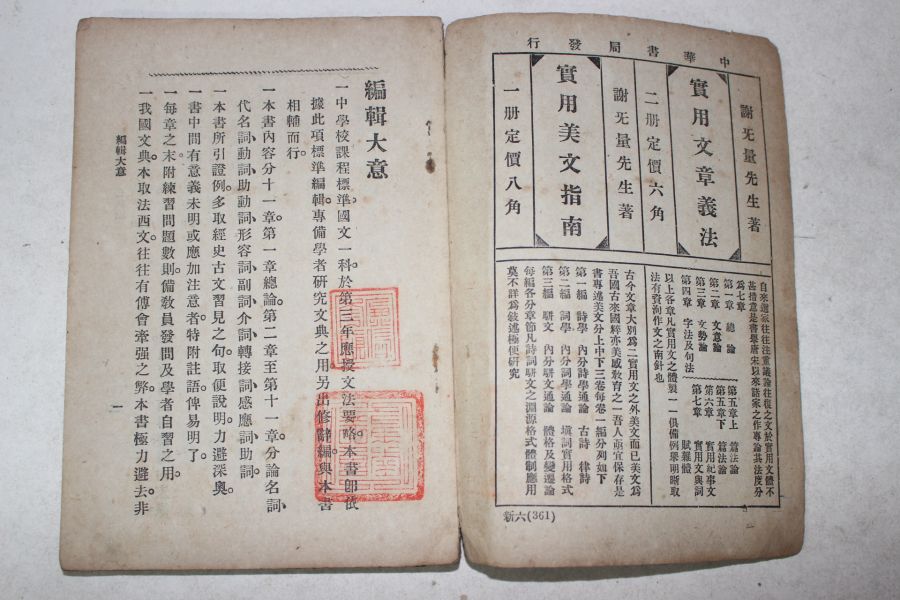 中華書局發行
謝无量先生著
實用文章義法
二册定價六角
謝无量先生著
實用美文指南
一册定價八角
自來選家往往注重議論往復之文於實用文體不
甚措意是書舉唐宋以來諸家之作專論其法度分
為七章
第一章 總論
第二章 文意論
第三章 文勢論
第四章 字法及句法
第五章上 篇法論
第五章下 篇法論
第六章 實用紀事文
第七章 實用文與詞賦雜體
以上各章凡實用文之體製一一俱備例舉明晰取
法有資洵作文之南針也
古今文章大別為二實用文之外美文而已美文為
吾國古來國粹亦美感教育之一吾人亟宜保存是
書專述美文分上中下三卷每卷一編分列如下
第一編 詩學 內分詩學通論 古詩 律詩
第二編 詞學 內分詞學通論 填詞實用格式
第三編 駢文 內分駢文通論 體格及變遷論
每編各分章節凡詩詞駢文之淵源格式體制應用
莫不詳為敘述極便研究
六新(361)
編輯大意
一中學校課程標準國文一科於第三年應授文法要略本書即依
據此項標準編輯。專備學者研究文典之用另出修辭編與本書
相輔而行。
一本書內容分十一章。第一章總論。第二章至第十一章。分論名詞
代名詞動詞助動詞形容詞副詞介詞轉接詞感應詞助詞。
一本書所引證例。多取經史古文習見之句。取便說明。力避深奧。
一書中間有意義未明或應加注意者。特附註語。俾易明了。
一每章之末。附練習問題數則。備敎員發問及學者自習之用。
一我國文典。本取法西文。往往有傅會牽强之弊。本書極力避去。非
編輯大意
一